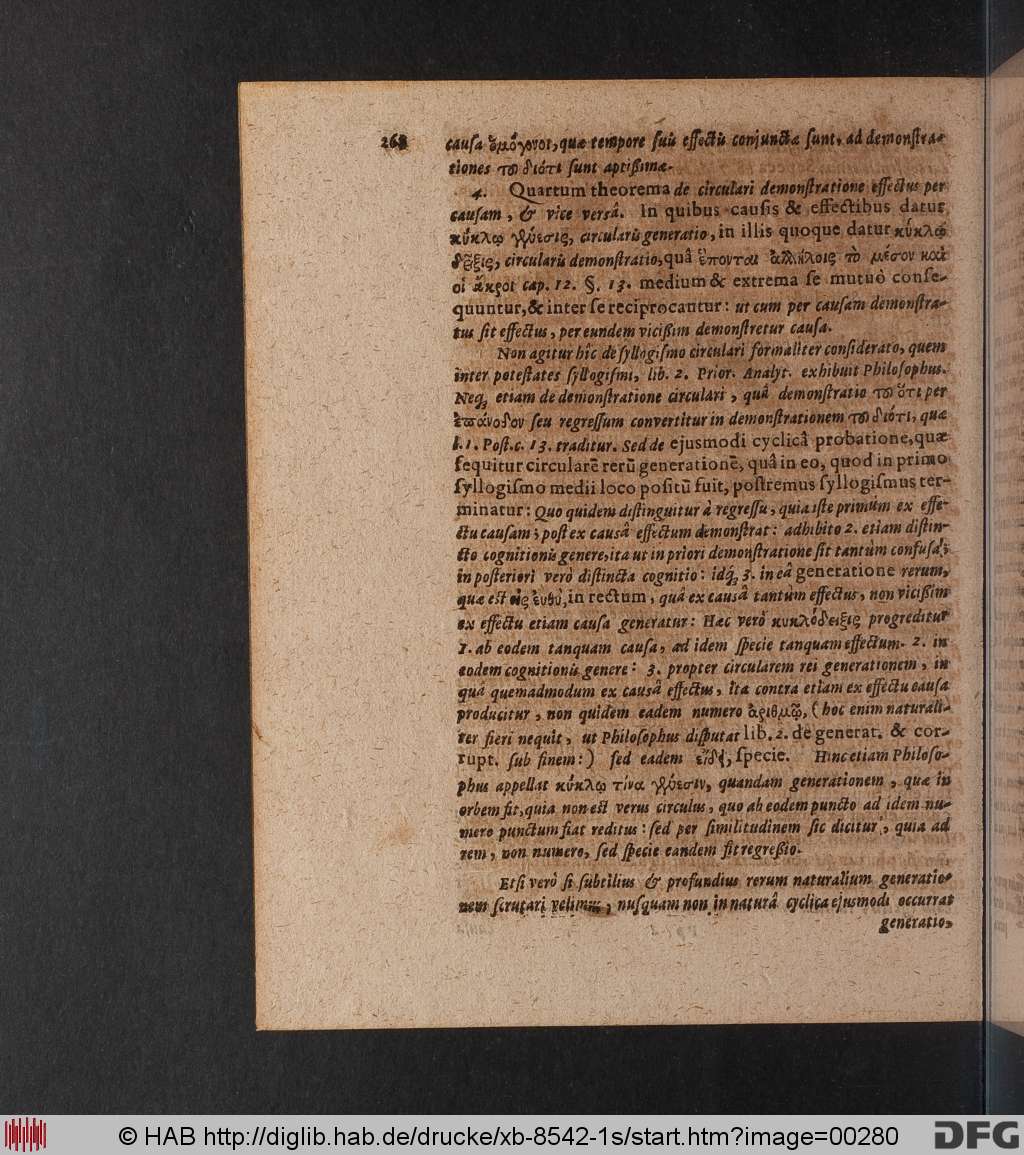 268
causa ὁμόγονοι, quæ tempore suis effectis conjunctæ sunt, ad demonstra-
tiones τοῦ διότι sunt aptissimæ.
4. Quartum theorema de circulari demonstratione effectus per
causam, & vice versâ. In quibus causis & effectibus datur
κύκλῳ γένεσις, circularis generatio, in illis quoque datur κύκλῳ
δεῖξις, circularis demonstratio, quâ ἕπονται ἀλλήλοις τὸ μέσον καὶ
οἱ ἄκροι cap. 12. §. 13. medium & extrema se mutuò conse-
quuntur, & inter se reciprocantur: ut cum per causam demonstra-
tus sit effectus, per eundem vicißim demonstretur causa.
Non agitur hîc de syllogismo circulari formaliter considerato, quem
inter potestates syllogismi, lib. 2. Prior. Analyt. exhibuit Philosophus.
Neq; etiam de demonstratione circulari, quâ demonstratio τοῦ ὅτι per
ἐπάνοδον seu regressum convertitur in demonstrationem τοῦ διότι, quæ
l. 1. Post. c. 13. traditur. Sed de ejusmodi cyclicâ probatione, quæ
sequitur circularē rerū generationē, quâ in eo, quod in primo
syllogismo medii loco positū fuit, postremus syllogismus ter-
minatur: Quo quidem distinguitur à regressu, quia iste primùm ex effe-
ctu causam; post ex causâ effectum demonstrat: adhibito 2. etiam distin-
cto cognitionis genere, ita ut in priori demonstratione sit tantùm confusa;
in posteriori verò distincta cognitio: idq; 3. in eâ generatione rerum,
quæ est εἰς εὐθύ, in rectum, quâ ex causâ tantùm effectus, non vicißim
ex effectu etiam causa generatur: Hæc verò κυκλόδειξις progreditur
1. ab eodem tanquam causa, ad idem specie tanquam effectum. 2. in
eodem cognitionis genere: 3. propter circularem rei generationem, in
quâ quemadmodum ex causâ effectus, ita contra etiam ex effectu causa
producitur, non quidem eadem numero ἀριθμῷ, (hoc enim naturali-
ter fieri nequit, ut Philosophus disputat lib. 2. de generat. & cor-
rupt. sub finem:) sed eadem εἴδει, specie. Hinc etiam Philoso-
phus appellat κύκλῳ τίνα γένεσιν, quandam generationem, quæ in
orbem fit, quia non est verus circulus, quo ab eodem puncto ad idem nu-
mero punctum fiat reditus: sed per similitudinem sic dicitur, quia ad
rem, non numero, sed specie eandem fit regreßio.
Etsi verò si subtilius & profundius rerum naturalium generatio-
nem scrutari velimus, nusquam non in naturâ cyclica ejusmodi occurrat
generatio,
© HAB http://diglib.hab.de/drucke/xb-8542-1s/start.htm?image=00280
DFG